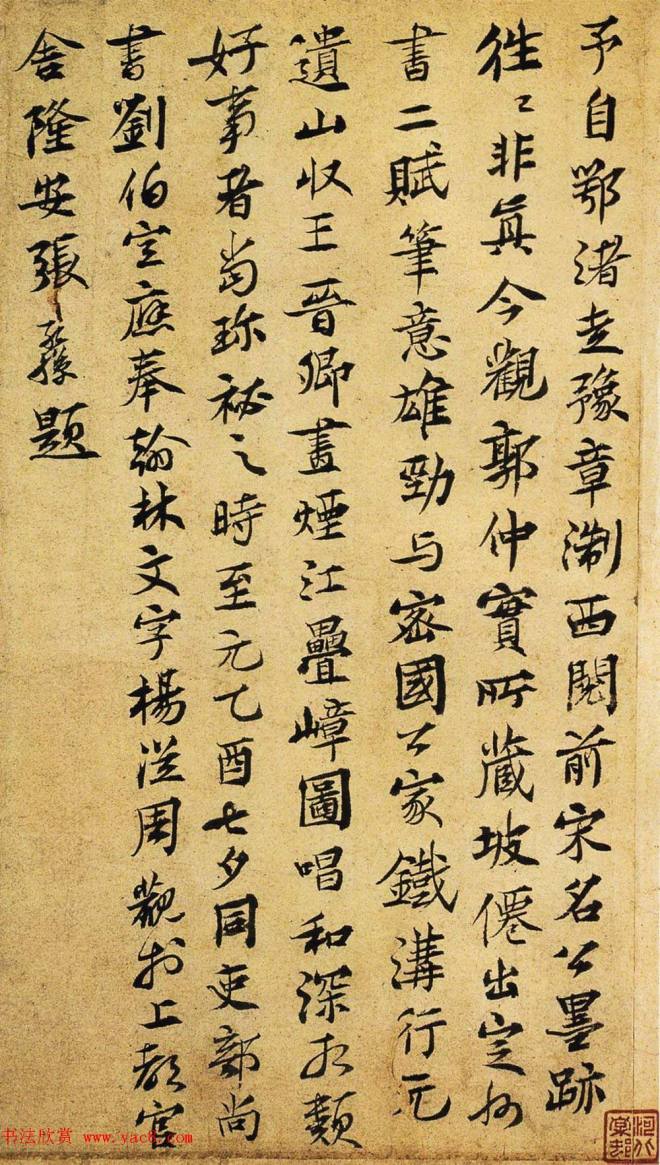 予自鄂渚走豫章淛西閱前宋名公墨跡
徃〻非真今觀郭仲實所藏坡僊出定州
書二賦筆意雄勁与密國公家鐵溝行元
遺山收王晉卿畫煙江疊嶂圖唱和深相類
好事者當珎祕之時至元乙酉七夕同吏部尚
書劉伯宣應奉翰林文字楊從周觀於上都官
舍隆安張孫題
书法欣赏 www.yac8.com